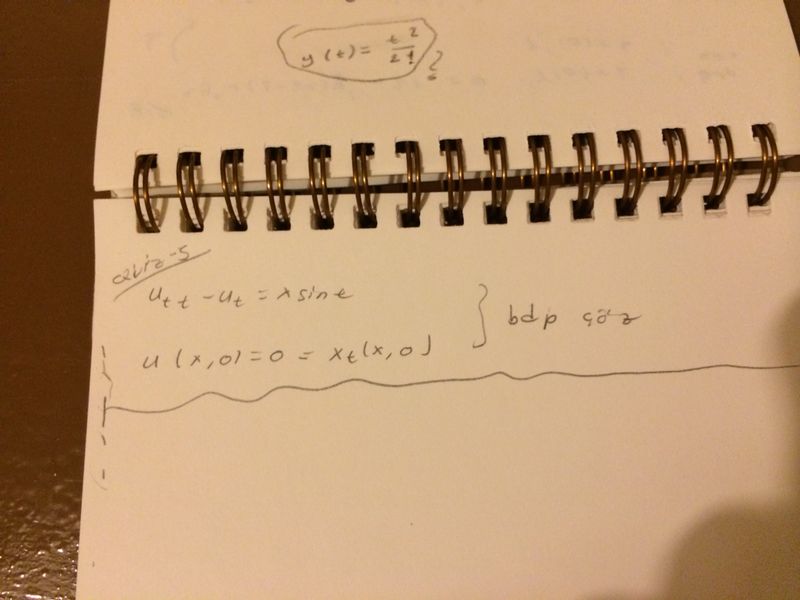 y(t) = t²/2! ?
ceviz-5
u_tt - u_t = x sin t
u(x,0) = 0 = x_t(x,0) } bdp çöz